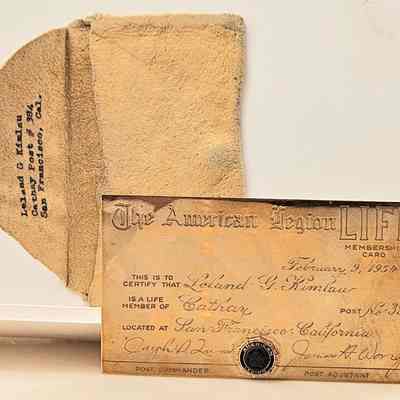 Leland G Kimlau
Cathay Post # 384
San Francisco, Cal.
The American Legion LIF
MEMBERSHIP
CARD
February 9, 1954
THIS IS TO
CERTIFY THAT Leland G. Kimlau
IS A LIFE
MEMBER OF Cathay POST No. 38
LOCATED AT San Francisco, California
Joseph
POST COMMANDER POST ADJUTANT